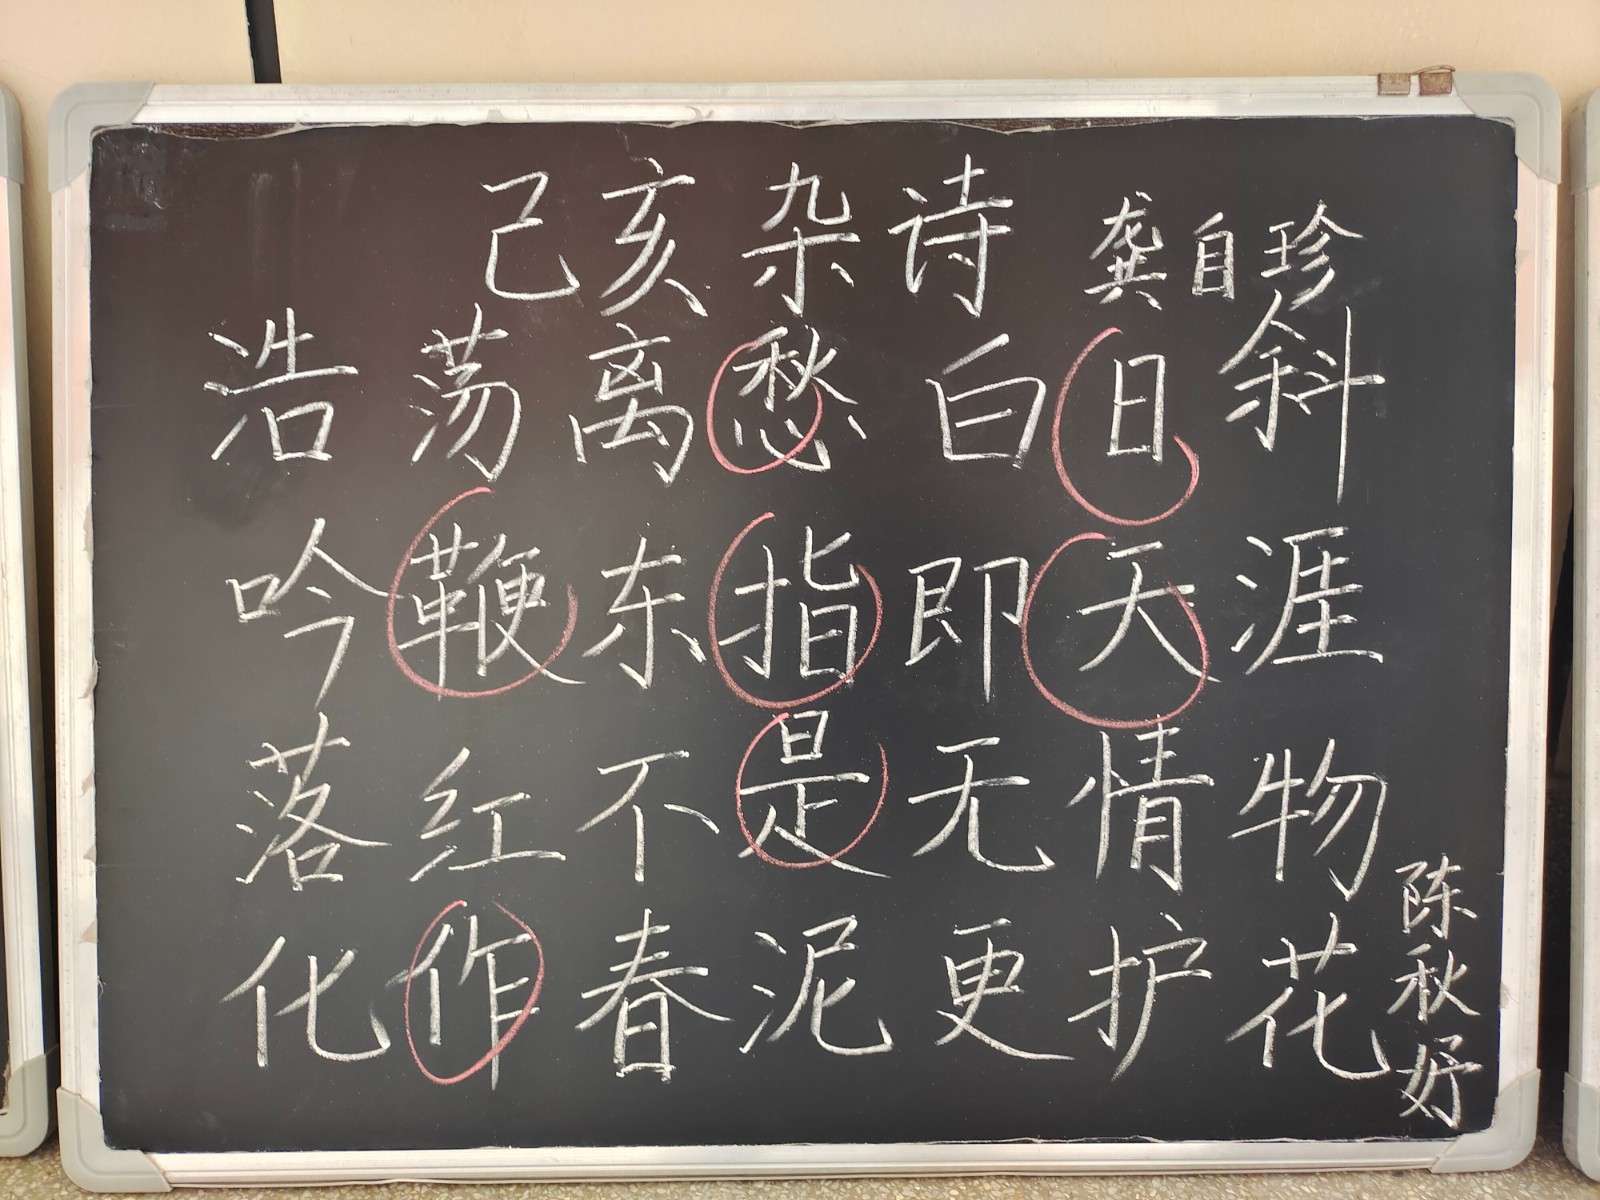 己亥杂诗 龚自珍
浩荡离愁白日斜
吟鞭东指即天涯
落红不是无情物
化作春泥更护花
陈秋好